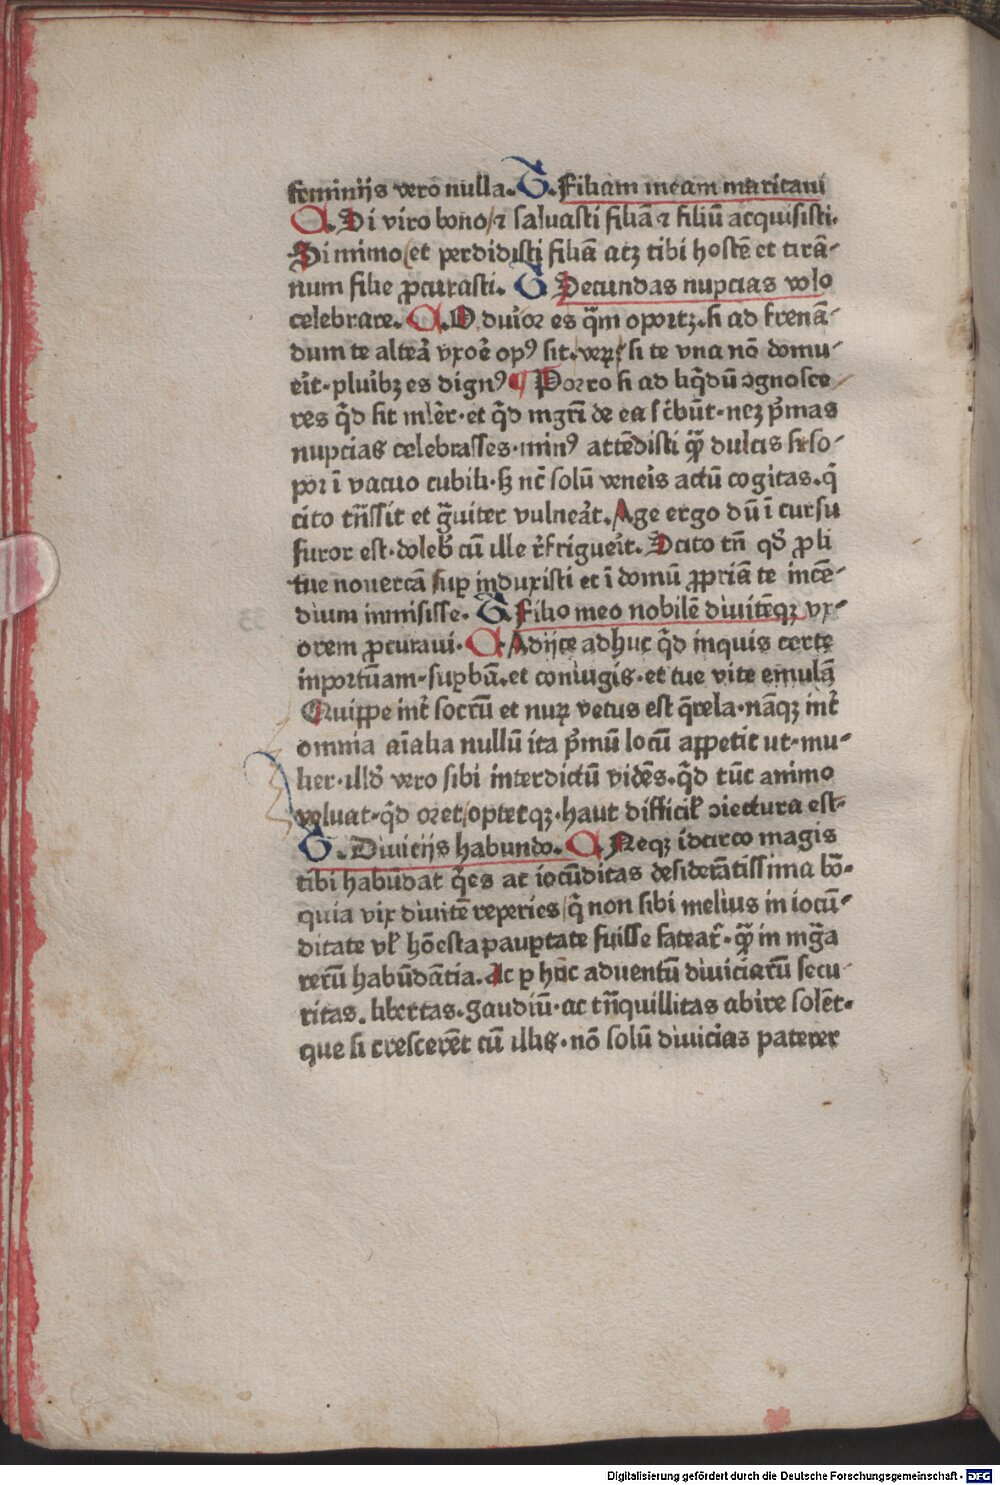 feminijs vero nulla. G. Filiam meam maritaui
A. Si viro bono/ ⁊ saluasti filiā ⁊ filiū acquisisti.
Si nimo/ et perdidisti filiā atqꝫ tibi hostē et tirā-
num filie ꝓcurasti. G Secundas nupcias volo
celebrare. A. O duꝛ̓or es q̄m oportꝫ. si ad frenā-
dum te alteā vxoē opꝰ sit. veꝝ si te vna nō domu-
eīt. pluibꝫ es dignꝰ ¶ Porro si ad liq̄dū ꝯgnosce
res q̄d sit mlēr. et q̄d mgrī de ea sc̄būt. neꝫ p̄mas
nupcias celebrasses. minꝰ attēdisti q̄ꝫ dulcis sit so-
por ī vacuo cubili. sꝫ nc̄ solū veneīs actū cogitas. q̄
cito tn̄ssit et g̃uiter vulneāt. Age ergo dū ī cursu
furor est. doleb̄ cū ille r̄frigueīt. Scito tn̄ qd̄ ꝓli
tue nouercā suꝑ induxisti et ī domū ꝓpriā te incē-
dium inmisisse. G. Filio meo nobilē diuitēqꝫ vx-
orem ꝓcuraui. A. Adijce adhuc q̄d inquis certe
inportūam. suꝑbā. et coniugis. et tue vite emulā
Quippe int̄ socrū et nuꝝ vetus est q̄rela. nāqꝫ int̄
omnia aīalia nullū ita p̄mū locū appetit ut. mu-
lier. illd̄ vero sibi interdictū vidēs. q̄d tūc animo
voluat. q̄d oret/ optetqꝫ. haut difficil̄ ꝯiectura est.
G. Diuicijs habundo. A. Neqꝫ idcirco magis
tibi habūdat q̄es ac iocūditas desiderātissima bō-
quia vix diuitē reperies/ q̄ non sibi melius in iocū-
ditate vl̄ hōesta pauꝑtate fuisse fateaꝛ̄. q̄ꝫ in mg̃a
rerū habūdātia. Ac ꝑ hūc aduentū diuiciarū secu-
ritas. libertas. gaudiū. ac tn̄quillitas abire solēt.
que si crescerēt cū illis. nō solū diuicias paterer
Digitalisierung gefördert durch die Deutsche Forschungsgemeinschaft - DFG